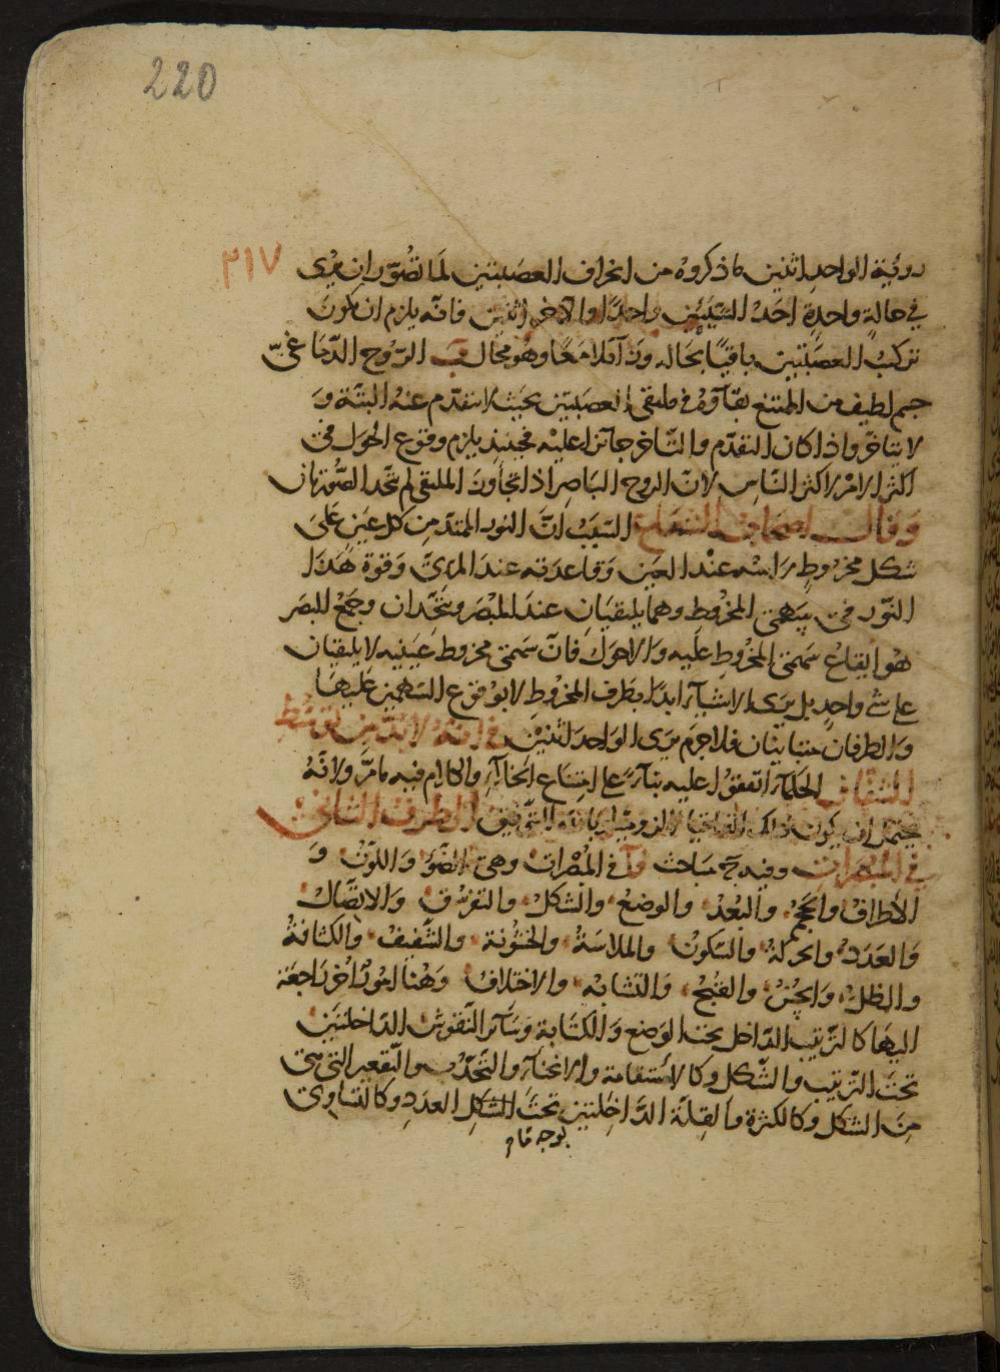 220
٣١٧
رؤية الواحد اثنين ما ذكروه من انحراف العصبتين لما تصور ان يرى
في حالة واحدة احد الشيئين واحدا والآخر اثنين فانه يلزم ان يكون
تركب العصبتين باقيا بحاله وزائلا معا وهو محال الروح الدماغي
جسم لطيف من الممتنع بقاؤه في ملتقى العصبتين بحيث لا يتقدم عنه البتة و
لا يتاخر واذا كان التقدم والتاخر جائزا عليه فحينئذ يلزم وقوع الحول في
اكثر الامر لاكثر الناس لان الروح الباصر اذا تجاوز الملتقى لم تتحد الصورتان
وقال اصحاب الشعاع السبب ان النور الممتد من كل عين على
شكل مخروط راسه عند العين وقاعدته عند المرئي وقوة هذا
النور في سهمي المخروط وهما يلتقيان عند المبصر ويتحدان وجمع البصر
هو ايقاع سهمي المخروط عليه والاحول فان سهمي مخروط عينيه لا يلتقيان
على شي واحد بل يرى الاشيآء ابدا بطرف المخروط لا بوقوع السهمين عليها
والطرفان متباينان فلا جرم يرى الواحد اثنين في انه لا بد من توسط
الشفاف الحكمآء اتفقوا عليه بنآء على امتناع الخلآء والكلام فيه ما مر ولانه
يحتمل ان يكون ذلك التوفيق الطرف الثاني
في المبصرات وفيه مباحث في المبصرات وهي الضؤ واللون و
الاطراف والحجم والبعد والوضع والشكل والتفرق والاتصال
والعدد والحركة والسكون والملاسة والخشونة والشفيف والكثافة
والظل والحسن والقبح والتشابه والاختلاف وهنا امور اخر راجعة
اليها كالترتيب الداخل تحت الوضع والكتابة وسآئر النقوش الداخلتين
تحت الترتيب والشكل وكالاستقامة والانحنآء والتحدب والتقعير التي هي
من الشكل وكالكثرة والقلة الداخلتين تحت الشكل العدد وكالتساوي